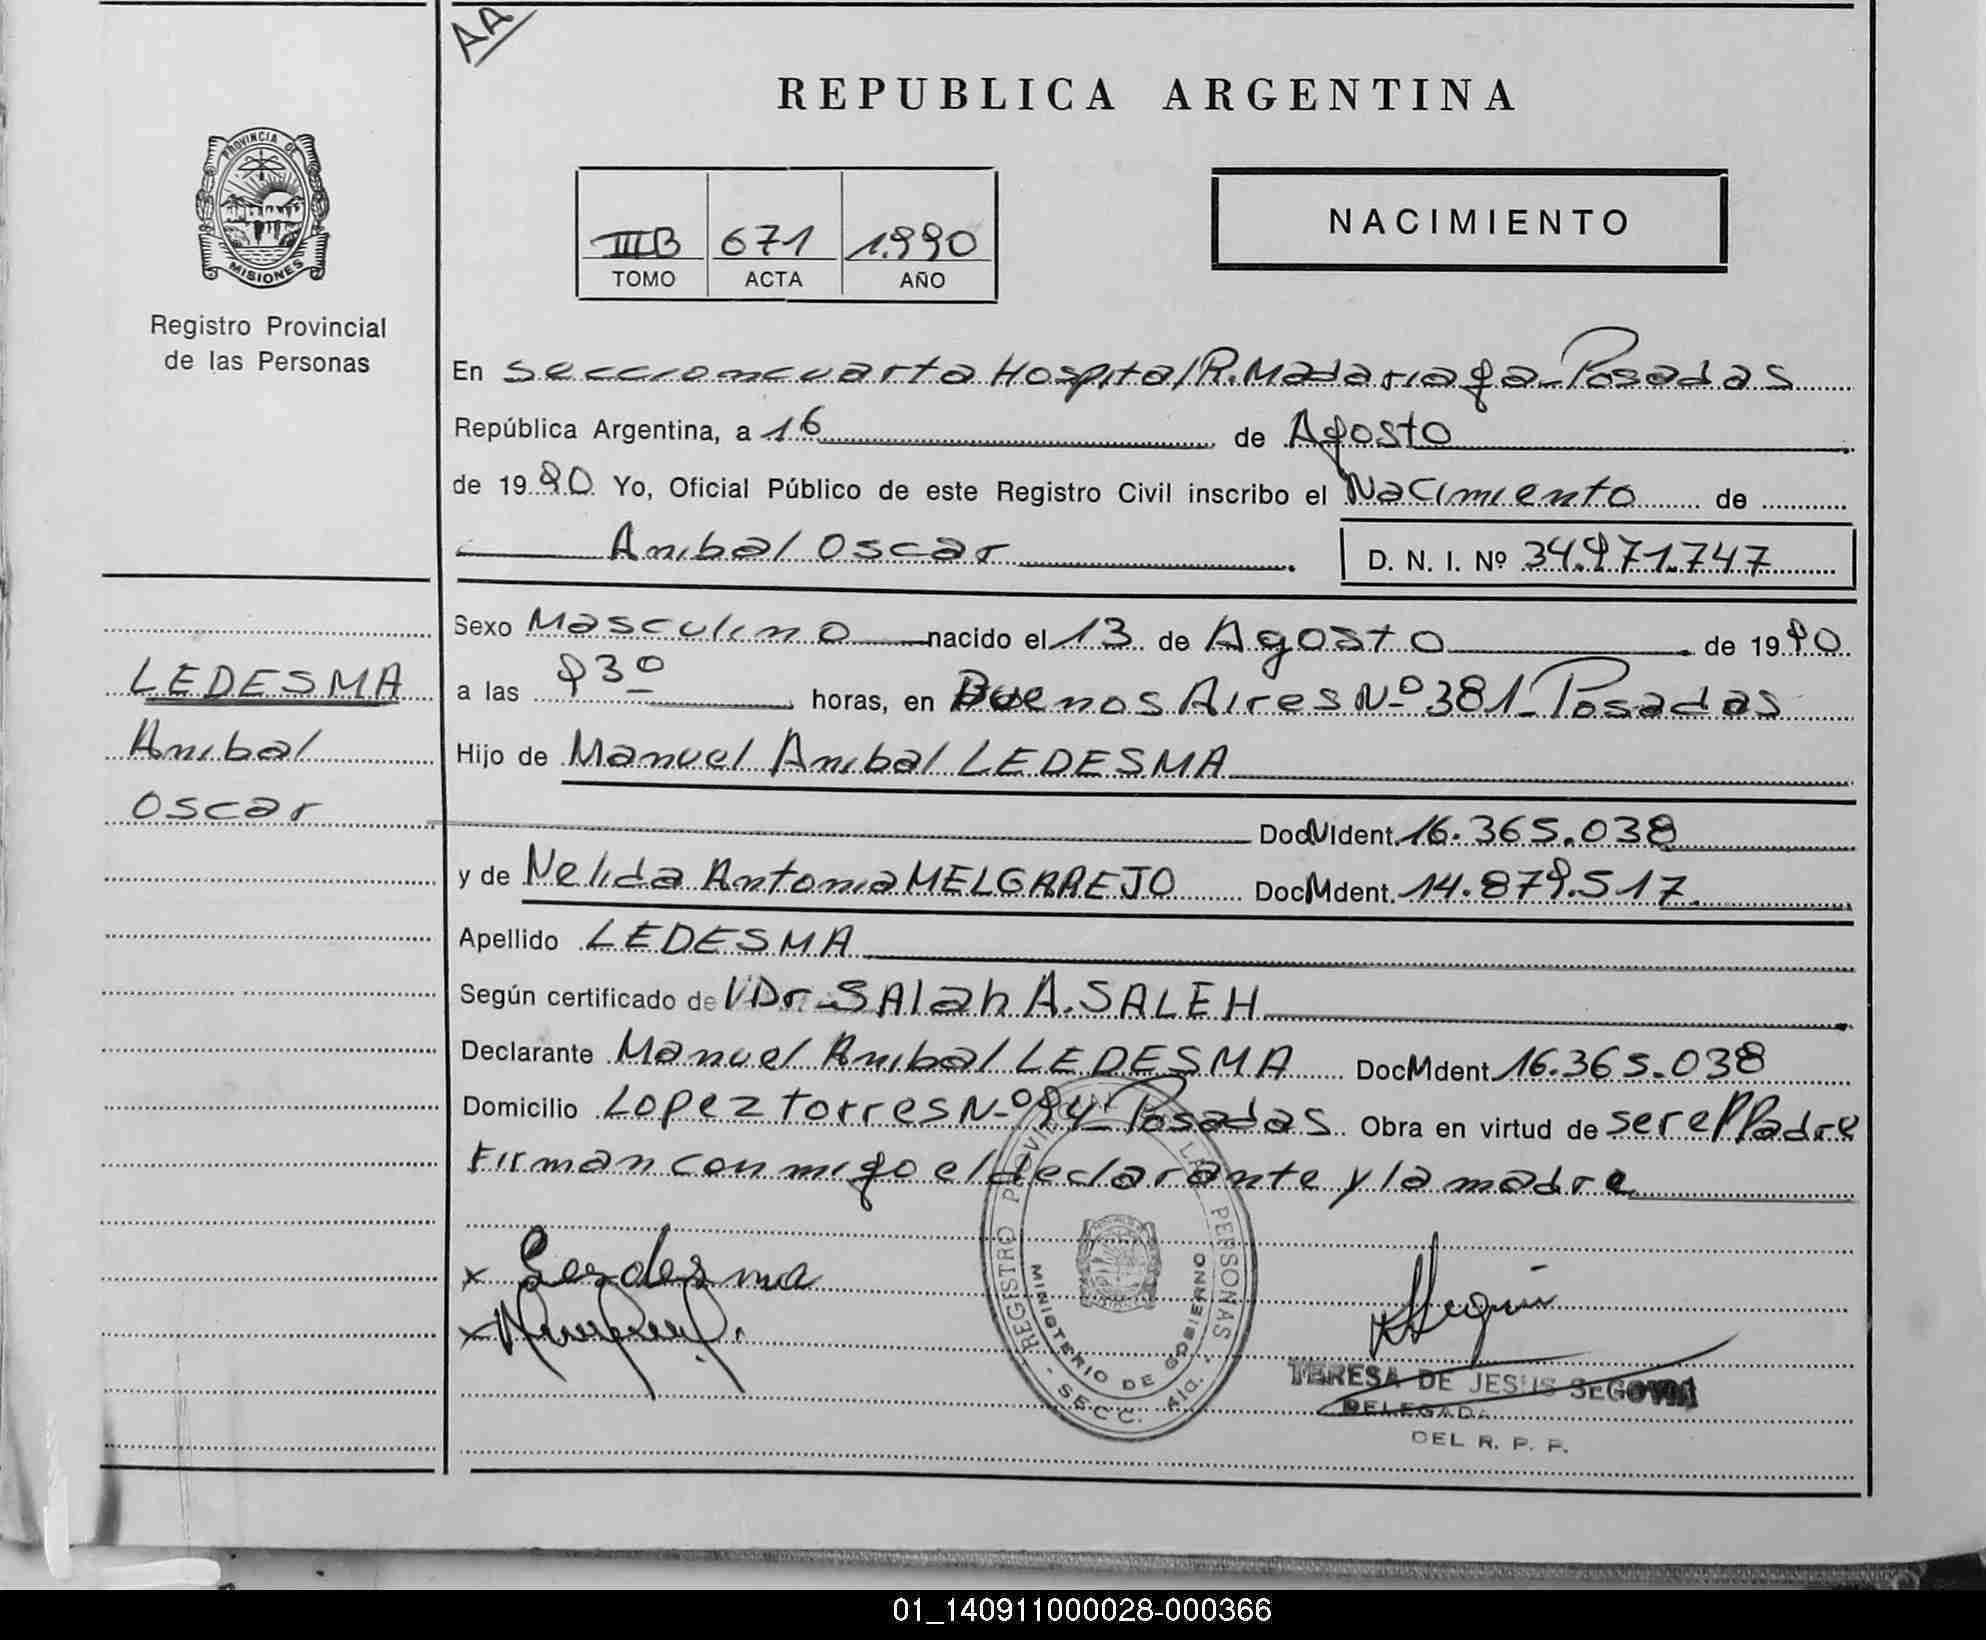 AA
REPUBLICA ARGENTINA
PROVINCIA DE
MISIONES
Registro Provincial
de las Personas
IIIB 671 1.990
TOMO ACTA AÑO
NACIMIENTO
En Seccion cuarta Hospital R. Madariaga - Posadas
República Argentina, a 16 de Agosto
de 1990 Yo, Oficial Público de este Registro Civil inscribo el Nacimiento de
Anibal Oscar
D. N. I. Nº 34.971.747
Sexo Masculino nacido el 13 de Agosto de 1990
a las 9 30 horas, en Buenos Aires Nº 381 - Posadas
Hijo de Manuel Anibal LEDESMA
Doc N Ident. 16.365.038
y de Nelida Antonia MELGAREJO Doc N Ident. 14.879.517
Apellido LEDESMA
Según certificado del Dr. SAlah A. SALEH
Declarante Manuel Anibal LEDESMA Doc N Ident 16.365.038
Domicilio Lopez torres Nº 94 - Posadas Obra en virtud de ser el Padre
Firman conmigo el declarante y la madre
LEDESMA
Anibal
Oscar
x Lesdesma
x
REGISTRO PROVINCIAL DE LAS PERSONAS
MINISTERIO DE GOBIERNO
- SECC. 4ta. -
TERESA DE JESUS SEGOVIA
DELEGADA
DEL R. P. P.
01_140911000028-000366